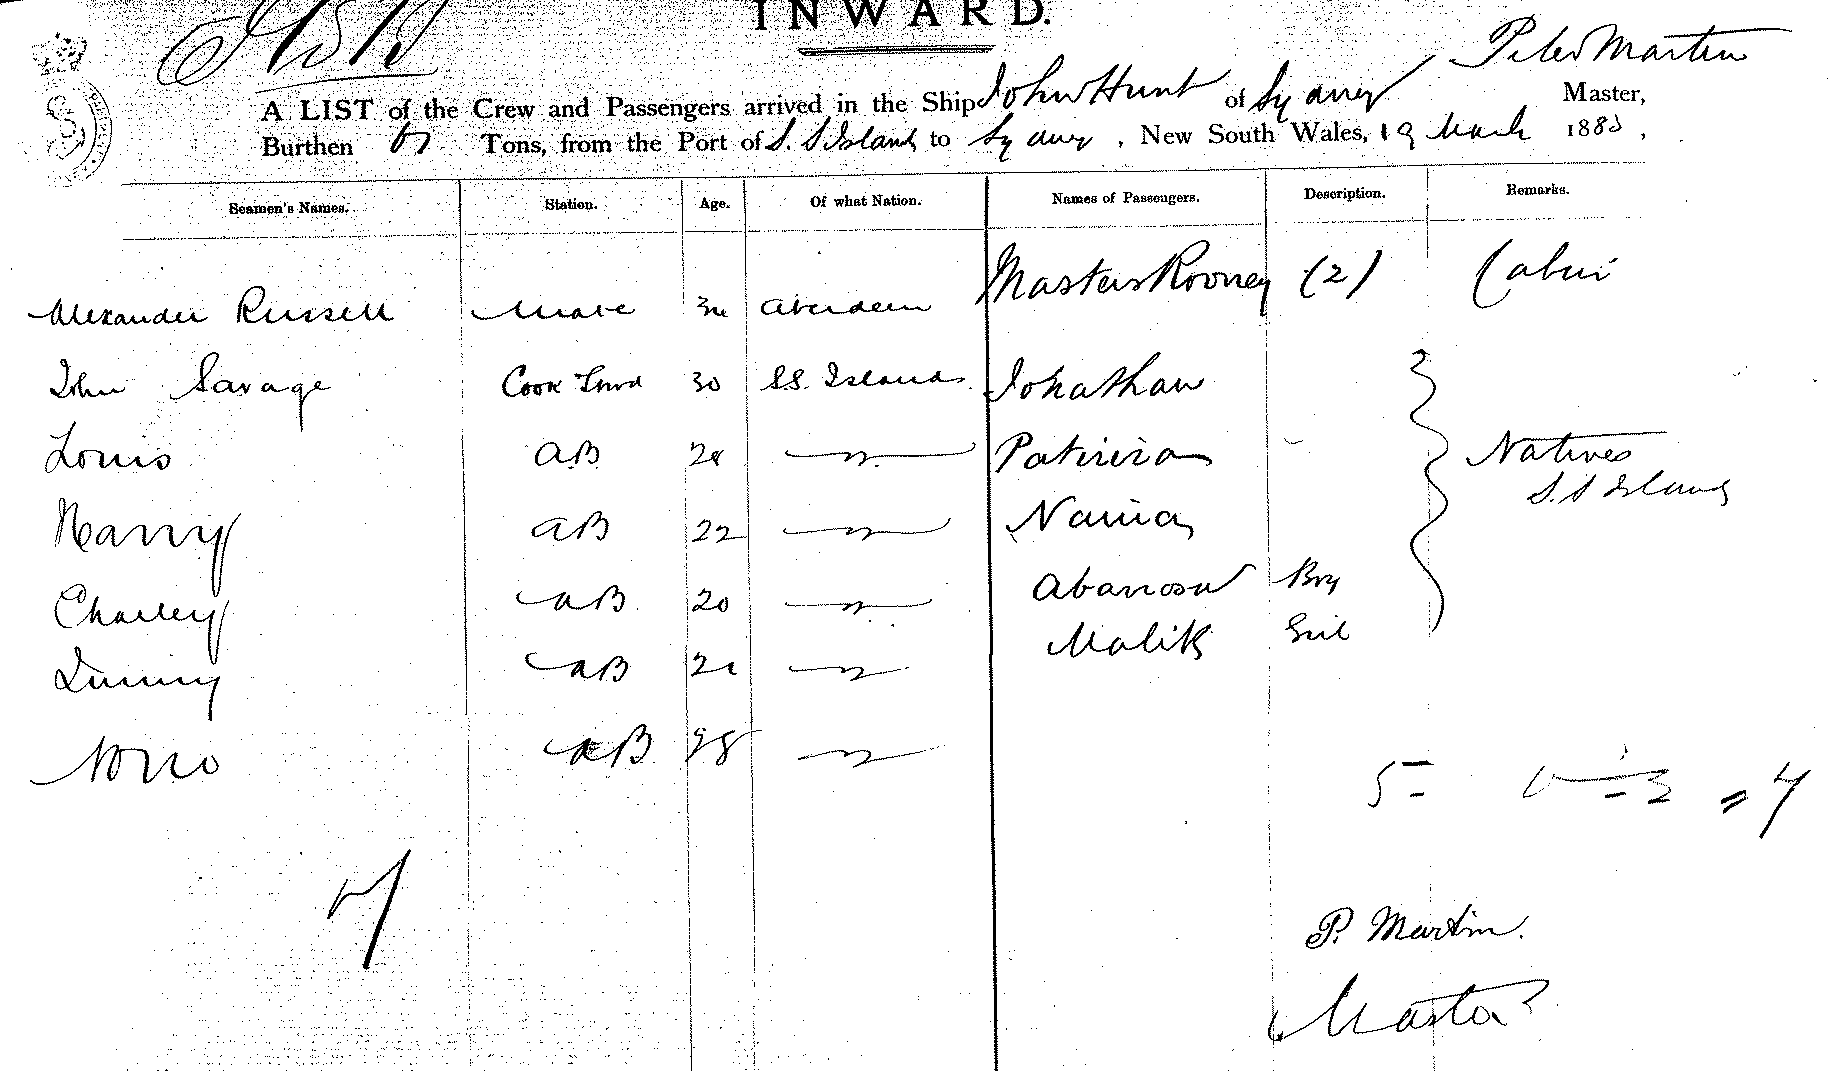 INWARD.
A LIST of the Crew and Passengers arrived in the Ship John Hunt of Sydney Peter Martin Master,
Burthen 67 Tons, from the Port of S. S Islands to Sydney, New South Wales, 19 March 1885,
Seamen's Names. Station. Age. Of what Nation. Names of Passengers. Description. Remarks.
Masters Rooney (2) Cabin
Alexander Russell Mate Aberdeen
John Savage Cook & Stwd 30 S.S. Islands Jonathan
Louis AB 28 " Natives
S. S Islands
Harry AB 22 "
Charley AB 20 " Boy
AB 21 " Malik Girl
AB 28 "
5 = = 7
7
P. Martin.
Master